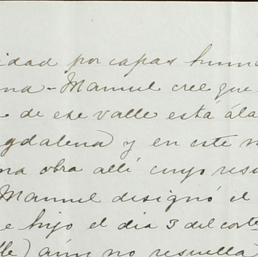 sidad por capas hum
na - Manuel cree que
de ese valle está á la
gdalena) y en este
na obra allí cuyo resu
Manuel designó el
e hijo el dia 3 del corte
lle) aún no resuelta